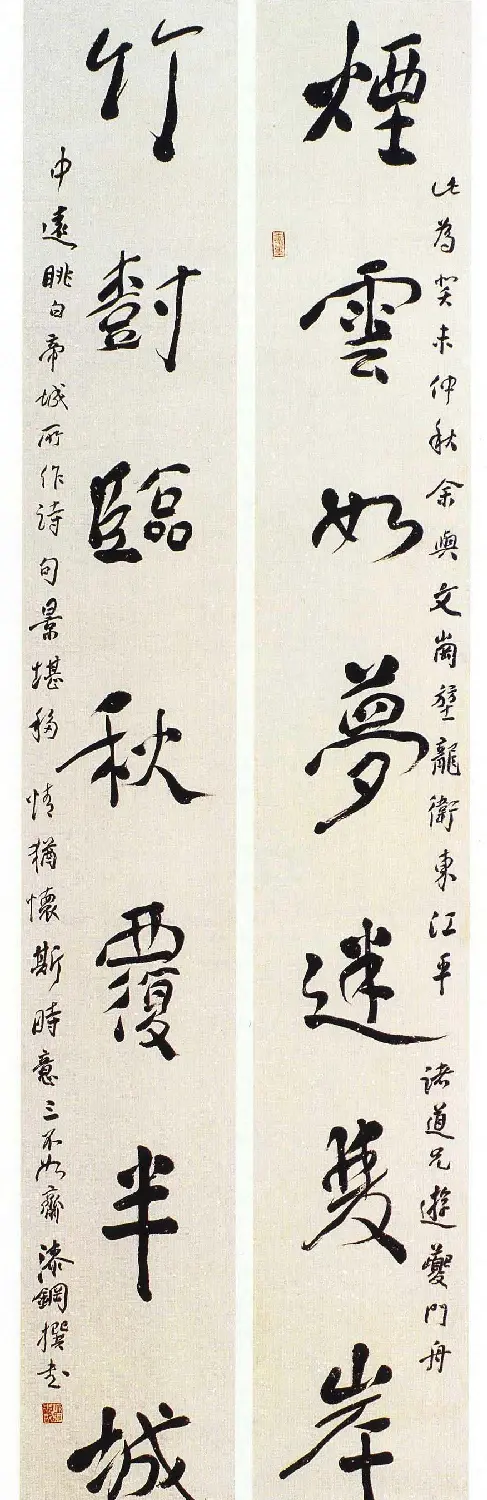 煙雲如夢迷雙岸
此為癸未仲秋余與文崗壁龍衛東江平諸道兄遊夔門舟
竹樹臨秋覆半城
中遠眺白帝城所作詩句景堪移情猶懷斯時意三不如齋漆鋼撰書